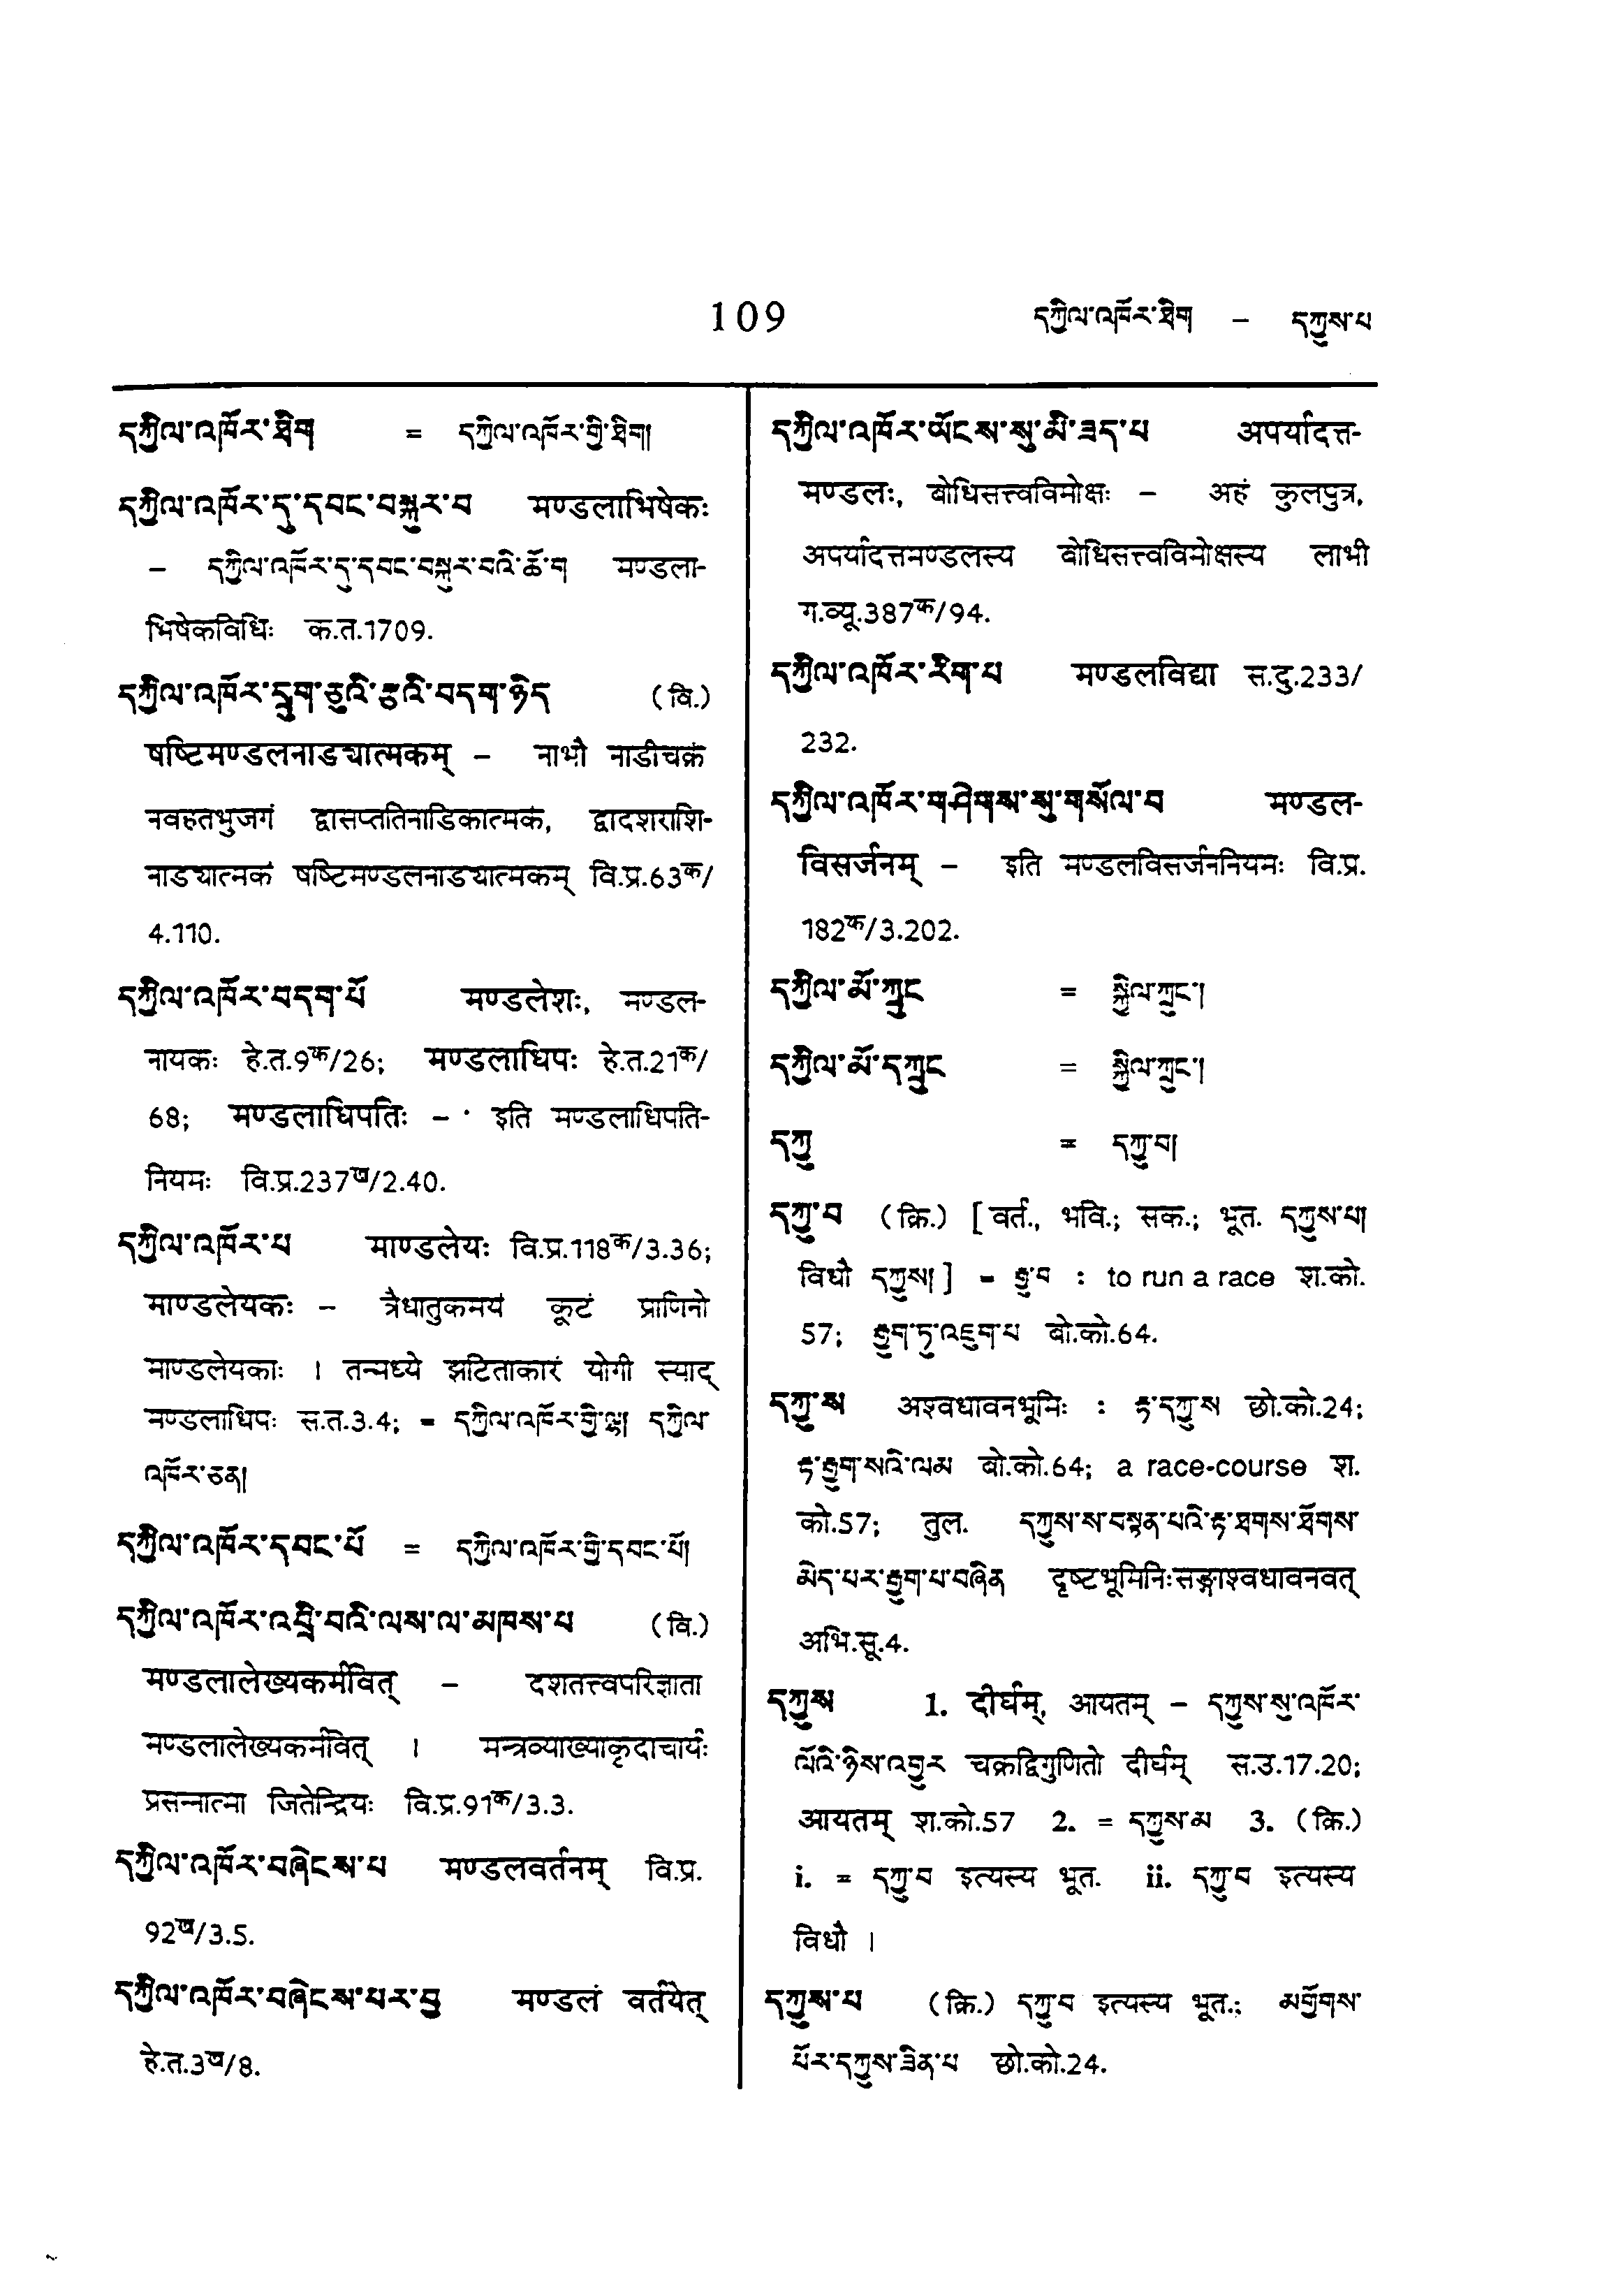 109
དཀྱིལ་འཁོར་ཐིག – དཀྱུས་པ
དཀྱིལ་འཁོར་ཐིག = དཀྱིལ་འཁོར་གྱི་ཐིག།
དཀྱིལ་འཁོར་དུ་དབང་བསྐུར་བ मण्डलाभिषेकः
– དཀྱིལ་འཁོར་དུ་དབང་བསྐུར་བའི་ཆོ་ག मण्डला-
भिषेकविधिः क.त.1709.
དཀྱིལ་འཁོར་དྲུག་ཅུའི་རྩའི་བདག་ཉིད (वि.)
षष्टिमण्डलनाड्यात्मकम् – नाभौ नाडीचक्रं
नवहतभुजगं द्वासप्ततिनाडिकात्मकं, द्वादशराशि-
नाड्यात्मकं षष्टिमण्डलनाड्यात्मकम् वि.प्र.63क/
4.110.
དཀྱིལ་འཁོར་བདག་པོ मण्डलेशः, मण्डल-
नायकः हे.त.9क/26; मण्डलाधिपः हे.त.21क/
68; मण्डलाधिपतिः – इति मण्डलाधिपति-
नियमः वि.प्र.237ख/2.40.
དཀྱིལ་འཁོར་པ माण्डलेयः वि.प्र.118क/3.36;
माण्डलेयकः – त्रैधातुकमयं कूटं प्राणिनो
माण्डलेयकाः । तन्मध्ये झटिताकारं योगी स्याद्
मण्डलाधिपः स.त.3.4; = དཀྱིལ་འཁོར་གྱི་ལྷ། དཀྱིལ་
འཁོར་ཅན།
དཀྱིལ་འཁོར་དབང་པོ = དཀྱིལ་འཁོར་གྱི་དབང་པོ།
དཀྱིལ་འཁོར་འབྲི་བའི་ལས་ལ་མཁས་པ (वि.)
मण्डलालेख्यकर्मवित् – दशतत्त्वपरिज्ञाता
मण्डलालेख्यकर्मवित् । मन्त्रव्याख्याकृदाचार्यः
प्रसन्नात्मा जितेन्द्रियः वि.प्र.91क/3.3.
དཀྱིལ་འཁོར་བཞེངས་པ मण्डलवर्तनम् वि.प्र.
92ख/3.5.
དཀྱིལ་འཁོར་བཞེངས་པར་བྱ मण्डलं वर्तयेत्
हे.त.3ख/8.
དཀྱིལ་འཁོར་ཡོངས་སུ་མི་ཟད་པ अपर्यादत्त-
मण्डलः, बोधिसत्त्वविमोक्षः – अहं कुलपुत्र,
अपर्यादत्तमण्डलस्य बोधिसत्त्वविमोक्षस्य लाभी
ग.व्यू.387क/94.
དཀྱིལ་འཁོར་རིག་པ मण्डलविद्या स.दु.233/
232.
དཀྱིལ་འཁོར་གཤེགས་སུ་གསོལ་བ मण्डल-
विसर्जनम् – इति मण्डलविसर्जननियमः वि.प्र.
182क/3.202.
དཀྱིལ་མོ་ཀྲུང = སྐྱིལ་ཀྲུང་།
དཀྱིལ་མོ་དཀྲུང = སྐྱིལ་ཀྲུང་།
དཀྱུ = དཀྱུ་བ།
དཀྱུ་བ (क्रि.) [ वर्त., भवि.; सक.; भूत. དཀྱུས་པ།
विधौ དཀྱུས། ] = རྒྱུ་བ : to run a race श.को.
57; རྒྱུག་ཏུ་འཇུག་པ बो.को.64.
དཀྱུ་ས अश्वधावनभूमिः : རྟ་དཀྱུ་ས छो.को.24;
རྟ་རྒྱུག་སའི་ལམ बो.को.64; a race-course श.
को.57; तुल. དཀྱུས་ས་བསྟན་པའི་རྟ་ཐགས་ཐོགས་
མེད་པར་རྒྱུག་པ་བཞིན दृष्टभूमिनिःसङ्गाश्वधावनवत्
अभि.सू.4.
དཀྱུས 1. दीर्घम्, आयतम् – དཀྱུས་སུ་འཁོར་
ལོའི་ཉིས་འགྱུར चक्रद्विगुणितो दीर्घम् स.उ.17.20;
आयतम् श.को.57 2. = དཀྱུས་མ 3. (क्रि.)
i. = དཀྱུ་བ इत्यस्य भूत. ii. དཀྱུ་བ इत्यस्य
विधौ ।
དཀྱུས་པ (क्रि.) དཀྱུ་བ इत्यस्य भूत.; མགྱོགས་
པོར་དཀྱུས་ཟིན་པ छो.को.24.